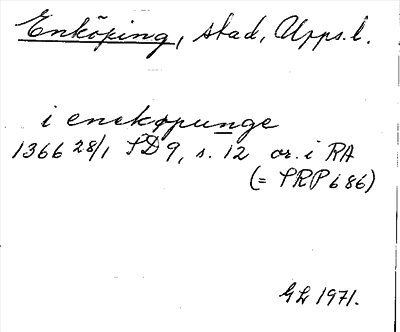 Enköping, stad, Upps.l.
i enekøpunge
1366 28/1 SD 9, s. 12 or. i RA
(= SRP 686)
GL 1971.